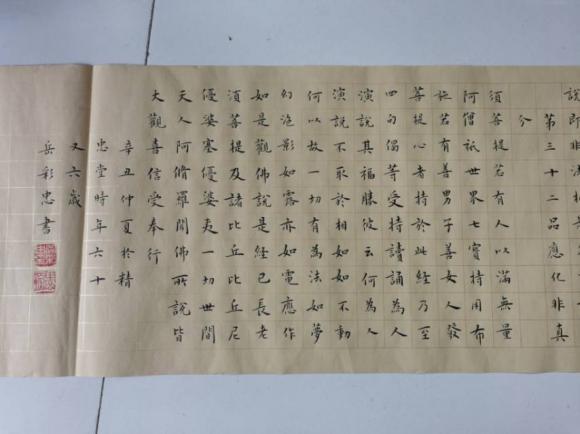 說即非法相
第三十二品應化非真
分
須菩提若有人以滿無量
阿僧祇世界七寶持用布
施若有善男子善女人發
菩提心者持於此經乃至
四句偈等受持讀誦為人
演說其福勝彼云何為人
演說不取於相如如不動
何以故一切有為法如夢
幻泡影如露亦如電應作
如是觀佛說是經已長老
須菩提及諸比丘比丘尼
優婆塞優婆夷一切世間
天人阿脩羅聞佛所說皆
大歡喜信受奉行
辛丑仲夏於精
忠堂時年六十
又六歲
岳彩忠書